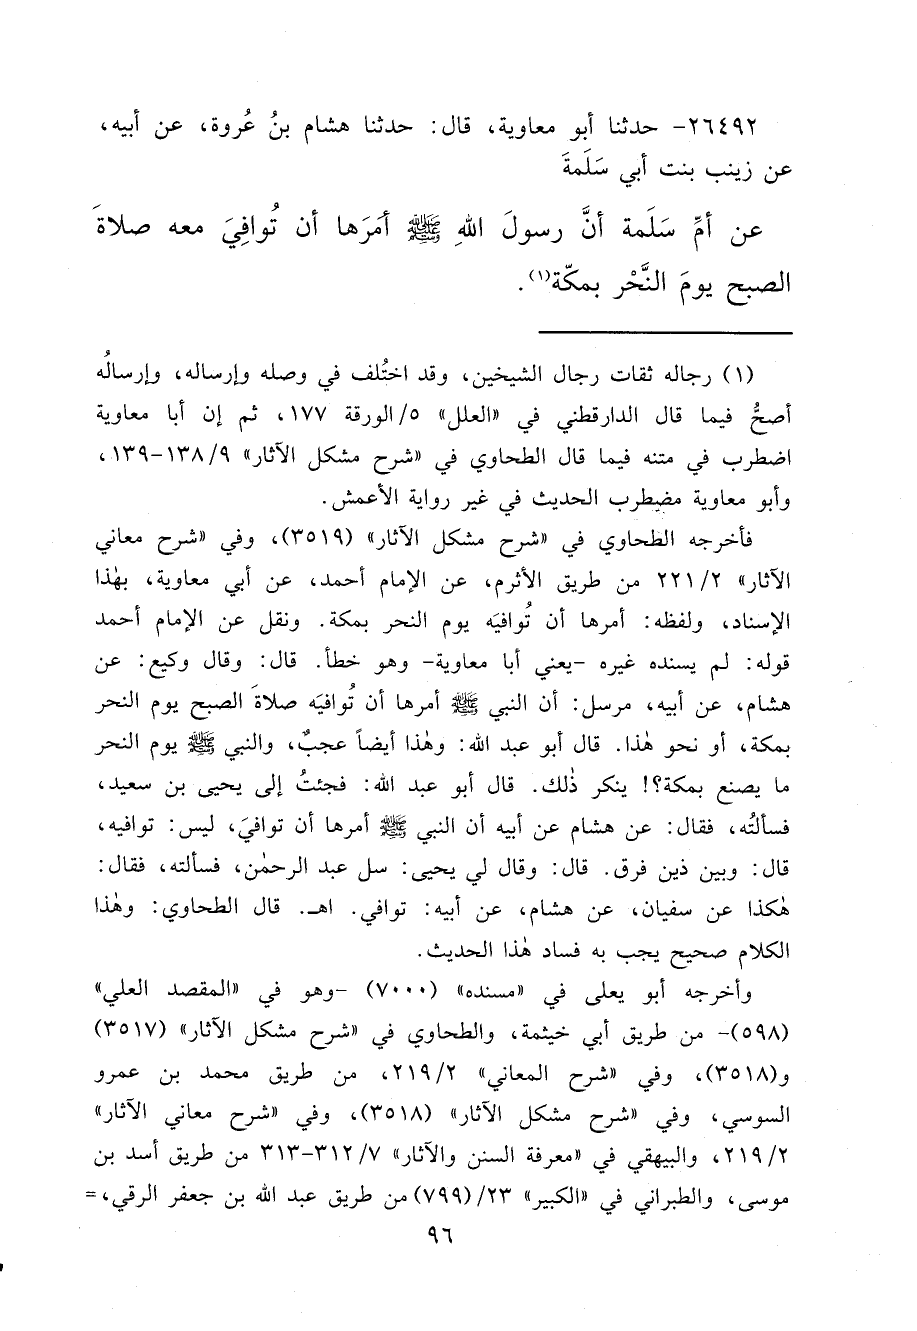 ٢٦٤٩٢- حدثنا أبو معاوية، قال: حدثنا هشام بنُ عُروة، عن أبيه،
عن زينب بنت أبي سَلَمةَ
عن أمِّ سَلَمة أنَّ رسولَ اللهِ ﷺ أَمَرَها أن تُوافِيَ معه صلاةَ
الصبح يومَ النَّحْر بمكّة(١).
(١) رجاله ثقات رجال الشيخين، وقد اختُلف في وصله وإرساله، وإرسالُه
أصحُّ فيما قال الدارقطني في «العلل» ٥/الورقة ١٧٧، ثم إن أبا معاوية
اضطرب في متنه فيما قال الطحاوي في «شرح مشكل الآثار» ٩/١٣٨-١٣٩،
وأبو معاوية مضطرب الحديث في غير رواية الأعمش.
فأخرجه الطحاوي في «شرح مشكل الآثار» (٣٥١٩)، وفي «شرح معاني
الآثار» ٢/٢٢١ من طريق الأثرم، عن الإمام أحمد، عن أبي معاوية، بهٰذا
الإسناد، ولفظه: أمرها أن تُوافيَه يوم النحر بمكة. ونقل عن الإمام أحمد
قوله: لم يسنده غيره -يعني أبا معاوية- وهو خطأ. قال: وقال وكيع: عن
هشام، عن أبيه، مرسل: أن النبي ﷺ أمرها أن تُوافيَه صلاةَ الصبح يوم النحر
بمكة، أو نحو هٰذا. قال أبو عبد الله: وهٰذا أيضاً عجبٌ، والنبي ﷺ يوم النحر
ما يصنع بمكة؟! ينكر ذٰلك. قال أبو عبد الله: فجئتُ إلى يحيى بن سعيد،
فسألتُه، فقال: عن هشام عن أبيه أن النبي ﷺ أمرها أن توافيَ، ليس: توافيه،
قال: وبين ذين فرق. قال: وقال لي يحيى: سل عبد الرحمٰن، فسألته، فقال:
هٰكذا عن سفيان، عن هشام، عن أبيه: توافي. اهـ. قال الطحاوي: وهٰذا
الكلام صحيح يجب به فساد هٰذا الحديث.
وأخرجه أبو يعلى في «مسنده» (٧٠٠٠) -وهو في «المقصد العلي»
(٥٩٨)- من طريق أبي خيثمة، والطحاوي في «شرح مشكل الآثار» (٣٥١٧)
و(٣٥١٨)، وفي «شرح المعاني» ٢/٢١٩، من طريق محمد بن عمرو
السوسي، وفي «شرح مشكل الآثار» (٣٥١٨)، وفي «شرح معاني الآثار»
٢/٢١٩، والبيهقي في «معرفة السنن والآثار» ٧/٣١٢-٣١٣ من طريق أسد بن
موسى، والطبراني في «الكبير» ٢٣/(٧٩٩) من طريق عبد الله بن جعفر الرقي، =
٩٦